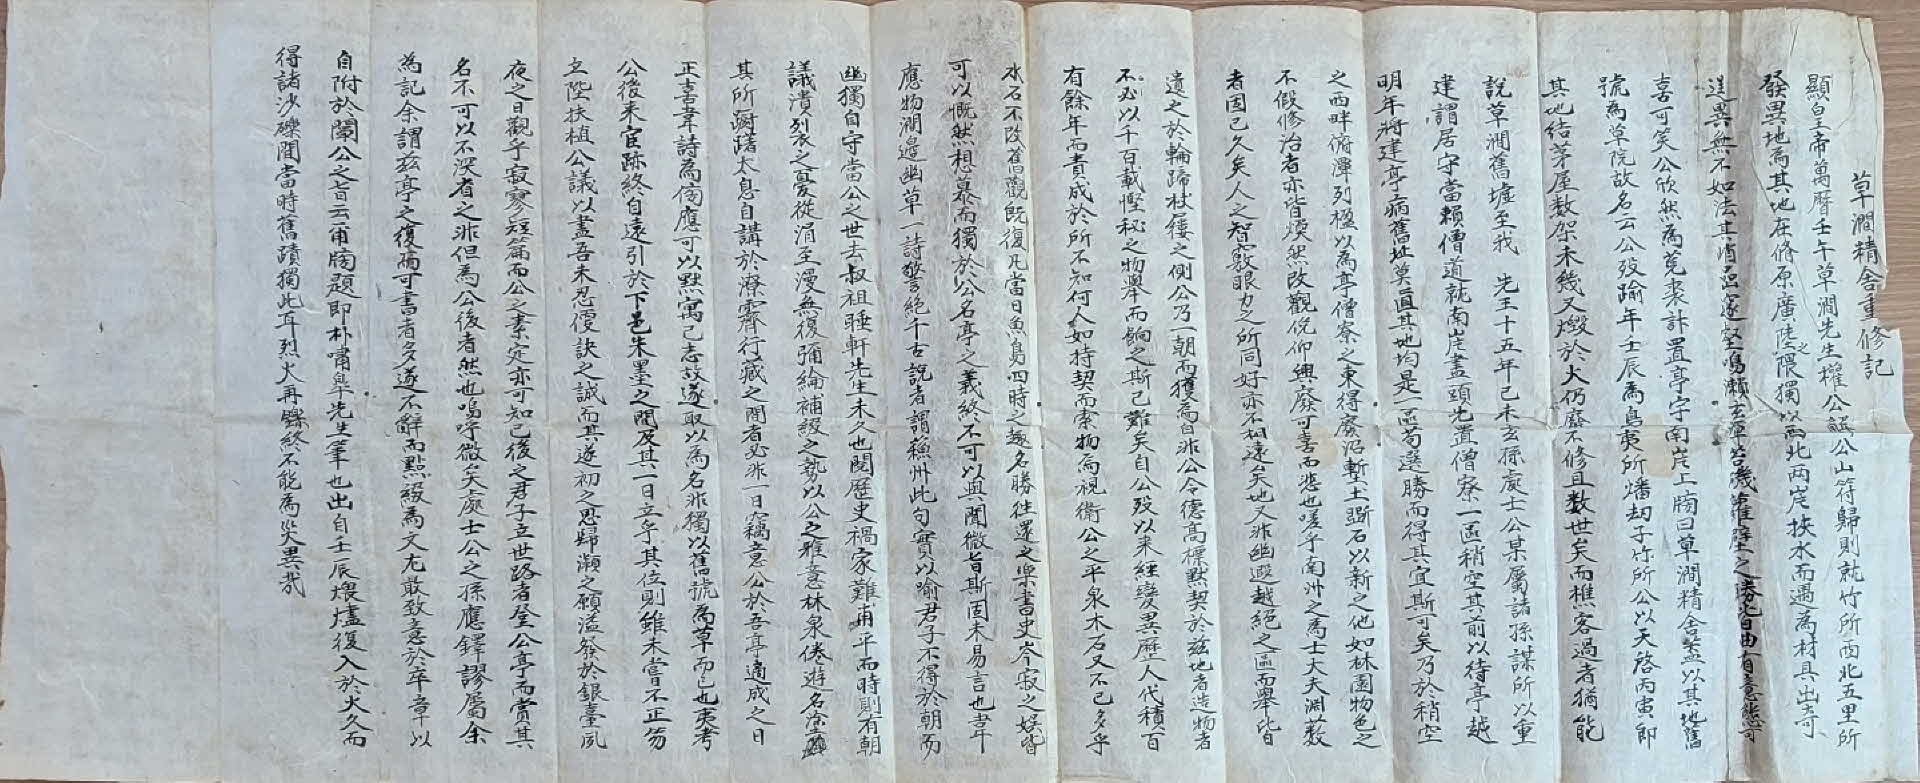 草澗精舍重修記
顯皇帝萬曆壬午草澗先生權公解公山符歸則就竹所西北五里所
發異地焉其地在脩原廣陸之隈獨以西北两崖挾水而遇為材具出奇
逞異無不如法其
喜可笑公欣然為莞裘計置亭于南崖上牓曰草澗精舍盖以其地舊
號為草院故名云公歿踰年壬辰為島夷所燔刧子竹所公以天啓丙寅即
其地結茅屋数架未幾又燬於火仍廢不修且数世矣而樵客過者猶能
說草澗舊墟至我 先王十五年己未玄孫處士公某屬諸孫謀所以重
建謂居守當賴僧道就南崖盡頭先置僧寮一區稍空其前以待亭越
明年將建亭病舊址莫直其地均是一區苟選勝而得其宜斯可矣乃於稍空
之西畔俯潭列楹以為亭僧寮之東得廢沼塹土斲石以新之他如林園物色之
不假修治者亦皆煥然改觀俛仰興廢可喜而悲也嗟乎南州之為士大夫渊薮
者固已久矣人之智竅眼力之所同好亦不相遠矣地又非幽遐越絕之區而舉皆
遺之於輪蹄杖屨之側公乃一朝而獲焉自非公令德高標默契於玆地者造物者
不必以千百載慳秘之物舉而餉之斯已難矣自公歿以来経變異歷人代積百
有餘年而責成於所不知何人如持契而索物焉視衛公之平泉木石又不已多乎
水石不改舊觀旣復凡當日魚鳥四時之趣名勝往還之樂書史岑寂之娱皆
可以慨然想慕而獨於公名亭之義終不可以與聞微旨斯固未易言也昔年
應物澗邊幽草一詩警絕千古說者謂蘓州此句實以喻君子不得於朝而
幽獨自守當公之世去叔祖睡軒先生未久也閱歷史禍家難甫平而時則有朝
議潰列衣之憂從涓至漫無復彌綸補綴之勢以公之雅意林泉倦遊名塗
其所躕躇太息自講於潦霽行藏之間者必非一日竊意公於吾亭適成之日
正喜韋詩為傍應可以點寓己志故遂取以為名非獨以舊號為草而已也夷考
公後来宦跡終自遠引於下邑朱墨之間及其一日立乎其位則雖未嘗不正笏
立陛扶植公議以盡吾未忍便訣之誠而其遂初之思歸瀨之願溢發於銀臺夙
夜之日觀乎寂寥短篇而公之素定亦可知已後之君子立世路者登公亭而賞其
名不可以不深者之非但為公後者然也嗚呼微矣處士公之孫應鐸謬屬余
為記余謂玆亭之復而可書者多遂不辭而點綴為文尤敢致意於卒章以
自附於闡公之旨云甫牓題即朴嘯臯先生筆也出自壬辰煨燼復入於火久而
得諸沙礫間當時舊蹟獨此耳烈火再爍終不能為災異哉